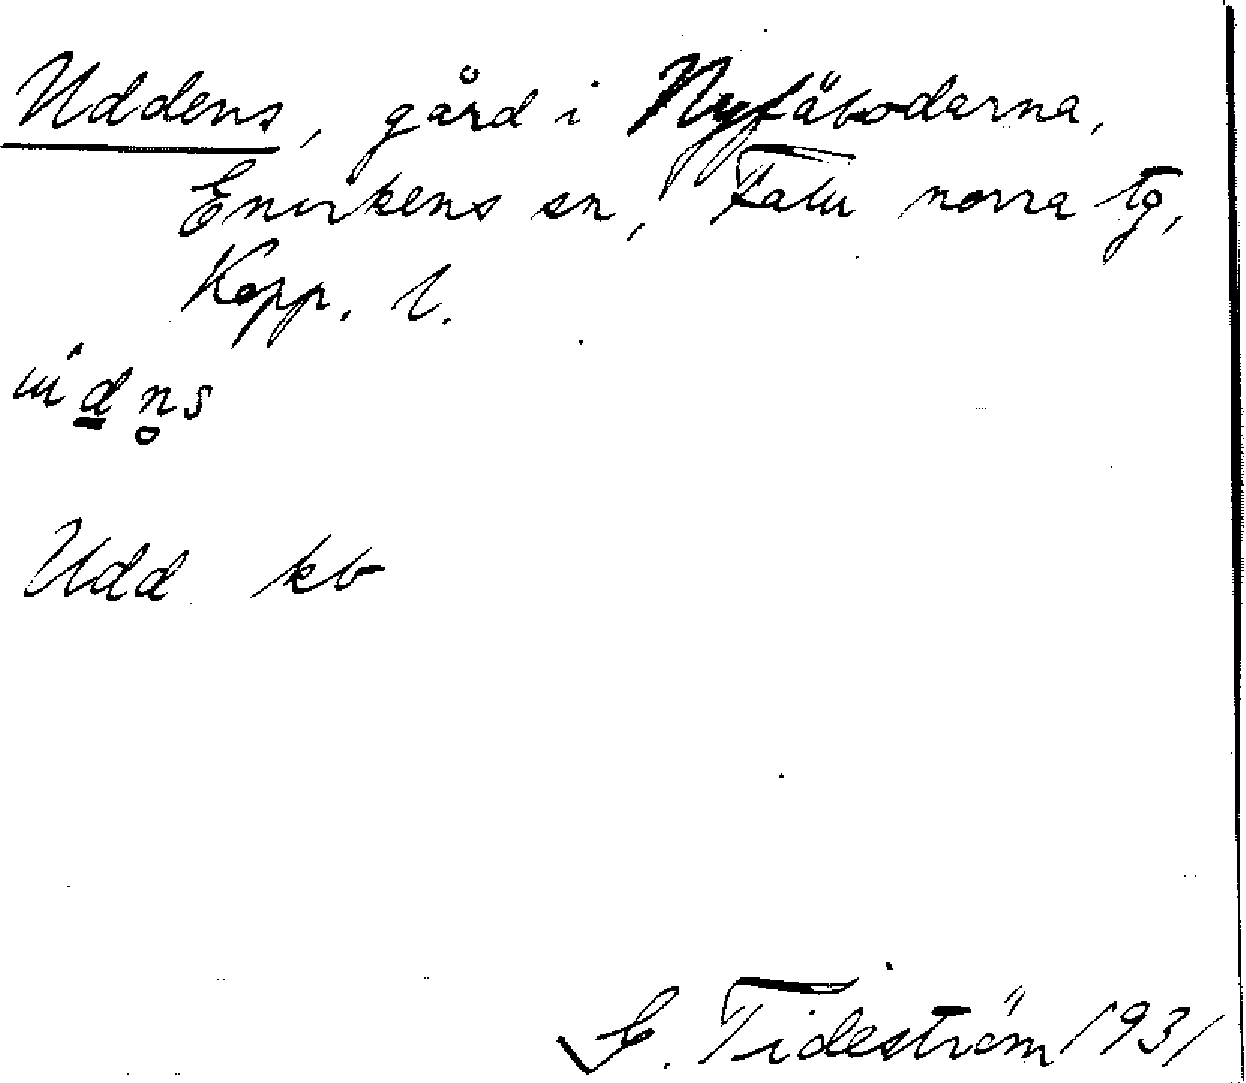 Uddens, gård i Nyfäboderna,
Envikens sn, Falu norra tg,
Kopp. l.
ud̲n̥s
Udd kb
G. Tideström 1931